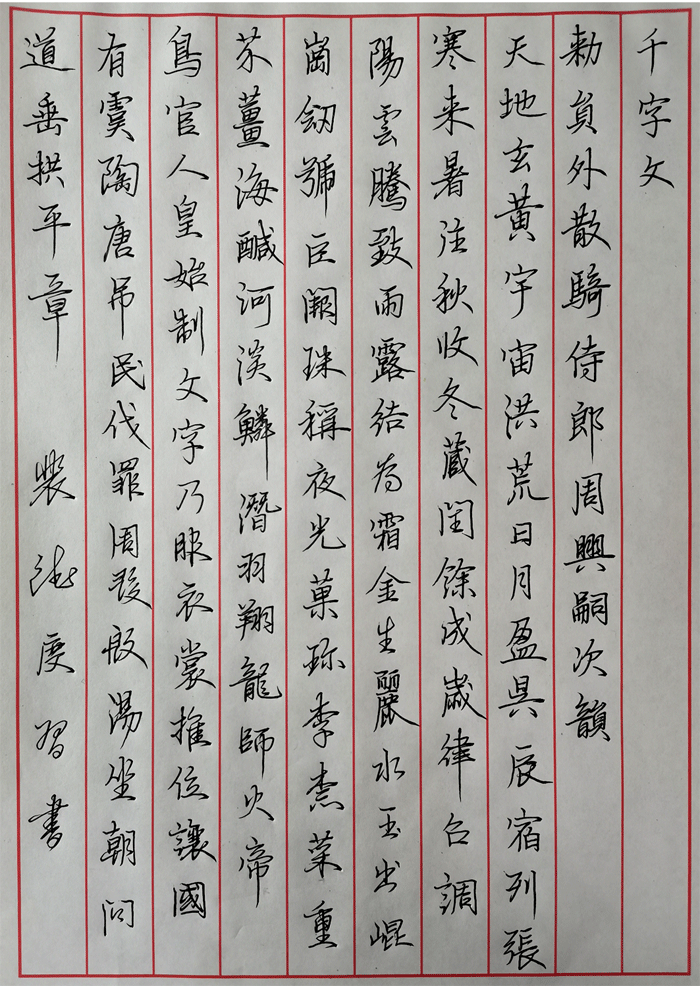 千字文
勅員外散騎侍郎周興嗣次韻
天地玄黃宇宙洪荒日月盈昃辰宿列張
寒来暑往秋收冬蔵閏餘成歲律吕調
陽雲騰致雨露結為霜金生麗水玉出崐
崗劒號巨闕珠稱夜光菓珎李柰菜重
芥薑海醎河淡鱗潛羽翔龍師火帝
鳥官人皇始制文字乃服衣裳推位讓國
有虞陶唐吊民伐罪周發殷湯坐朝問
道垂拱平章 習書